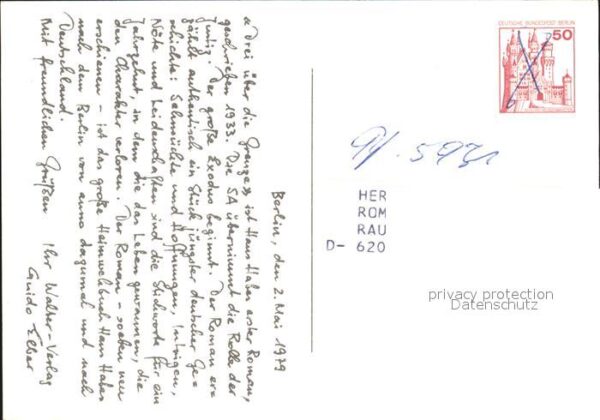 Berlin, den 2. Mai 1979
« Drei über die Grenze », ist Hans Habes erster Roman,
geschrieben 1933. Die SA übernimmt die Rolle der
Justiz. Der große Exodus beginnt. Der Roman er-
zählt authentisch ein Stück jüngster deutscher Ge-
schichte: Sehnsüchte und Hoffnungen, Intrigen,
Nöte und Leidenschaften sind die Stichworte für ein
Jahrzehnt, in dem die das Leben gewannen, die
den Charakter verloren. Der Roman - soeben neu
erschienen - ist das große Heimwehbuch Hans Habes
nach dem Berlin von anno dazumal und nach
Deutschland.
Mit freundlichen Grüßen Ihr Walter-Verlag
Guido Elber
DEUTSCHE BUNDESPOST BERLIN
50
HER
ROM
RAU
D- 620
privacy protection
Datenschutz